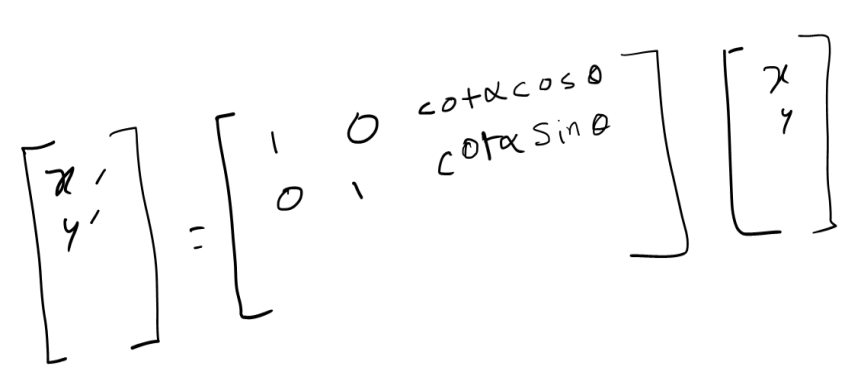 [x' y'] = [1 0 cotαcosθ
0 1 cotαsinθ] [x
y]